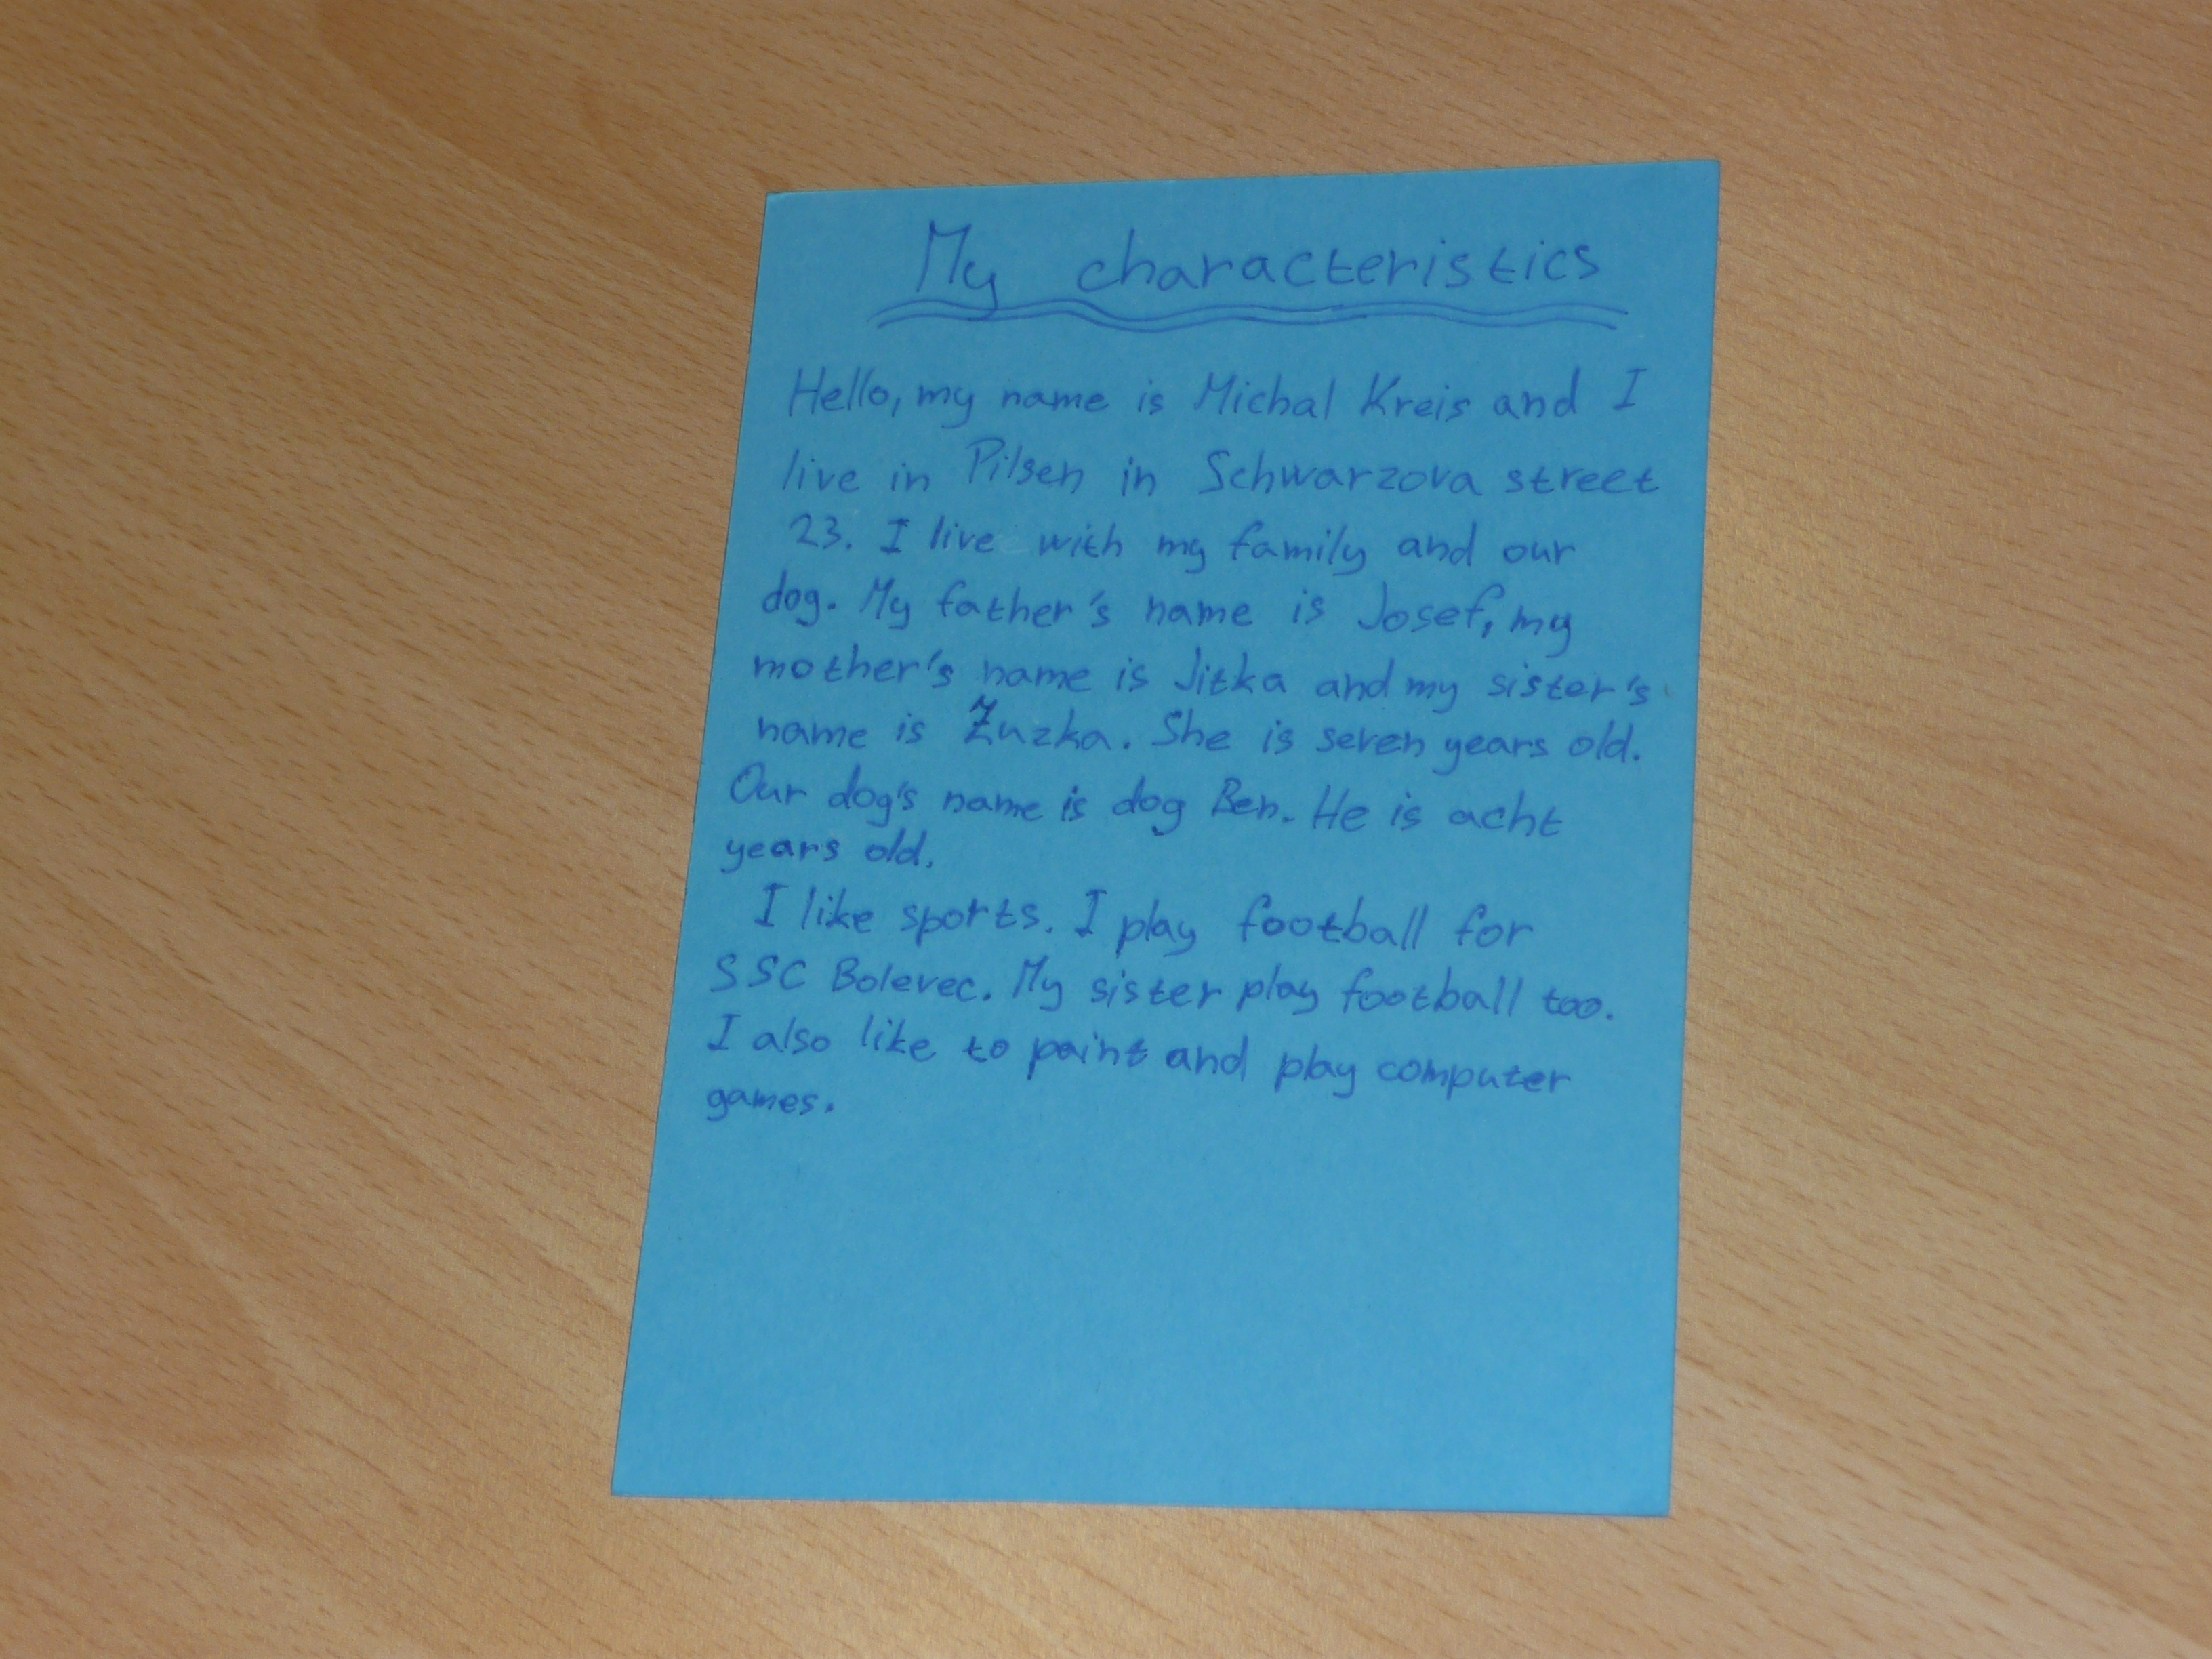 My characteristics
Hello, my name is Michal Kreis and I
live in Pilsen in Schwarzova street
23. I live with my family and our
dog. My father's name is Josef, my
mother's name is Jitka and my sister's
name is Zuzka. She is seven years old.
Our dog's name is dog Ben. He is acht
years old.
I like sports. I play football for
SSC Bolevec. My sister play football too.
I also like to paint and play computer
games.